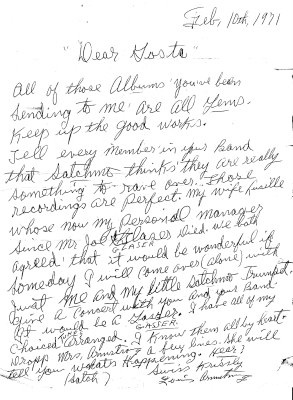 Feb, 10th, 1971
"Dear Gosta"
All of those Albums you've been
Sending to me are all Gems.
Keep up the good works.
Tell every member in your Band
that Satchmo thinks they are really
something to rave over. Those
recordings are perfect. My wife Lucille
whose now my Personal manager
Since Mr Joe Glaser died. We both
GLASER
agreed that it would be wonderful if
Someday I will come over (alone) with
Just me and my little Satchmo Trumpet.
Give a Concert with you and your Band.
It would be a Gasser. I have all of my
GASSER
Choice Arrange? I Know them all by heart.
Dropp Mrs. Armstrong a few lines. She will
tell you what's Happening. Hear?
Swiss Krissly
Satch)
Louis Armstrong